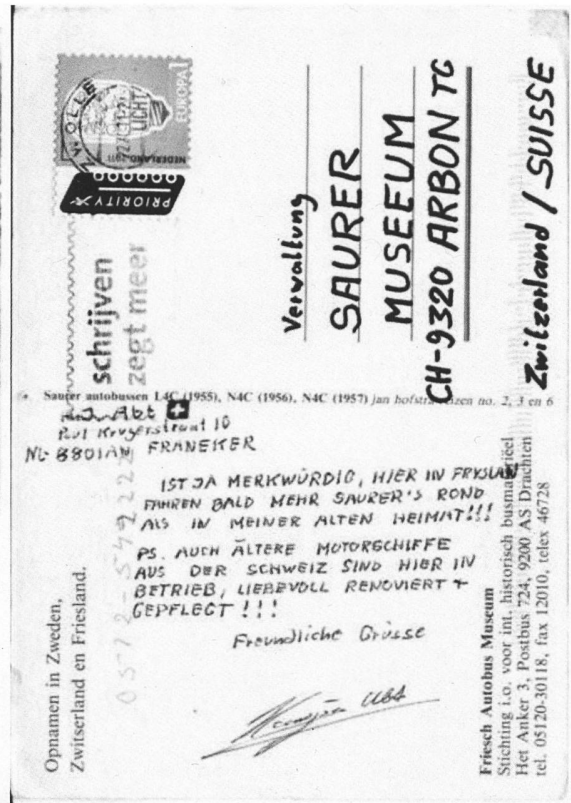 ZWOLLE
LICHT
NEDERLAND 2011
EUROPA 1
PRIORITY
schrijven
zegt meer
Verwaltung
SAURER
MUSEEUM
CH-9320 ARBON TG
Zwitzerland / SUISSE
Saurer autobussen L4C (1955), N4C (1956), N4C (1957) jan hofstra reizen no. 2, 3 en 6
Paul Krugerstraat 10
NL-8801AN FRANEKER
IST JA MERKWÜRDIG, HIER IN FRYSLAN
FAHREN BALD MEHR SAURER'S ROND
ALS IN MEINER ALTEN HEIMAT!!!
PS. AUCH ÄLTERE MOTORSCHIFFE
AUS DER SCHWEIZ SIND HIER IN
BETRIEB, LIEBEVOLL RENOVIERT +
GEPFLEGT!!!
Freundliche Grüsse
Opnamen in Zweden,
Zwitserland en Friesland.
Friesch Autobus Museum
Stichting i.o. voor int. historisch busmateriëel
Het Anker 3, Postbus 724, 9200 AS Drachten
tel. 05120-30118, fax 12010, telex 46728